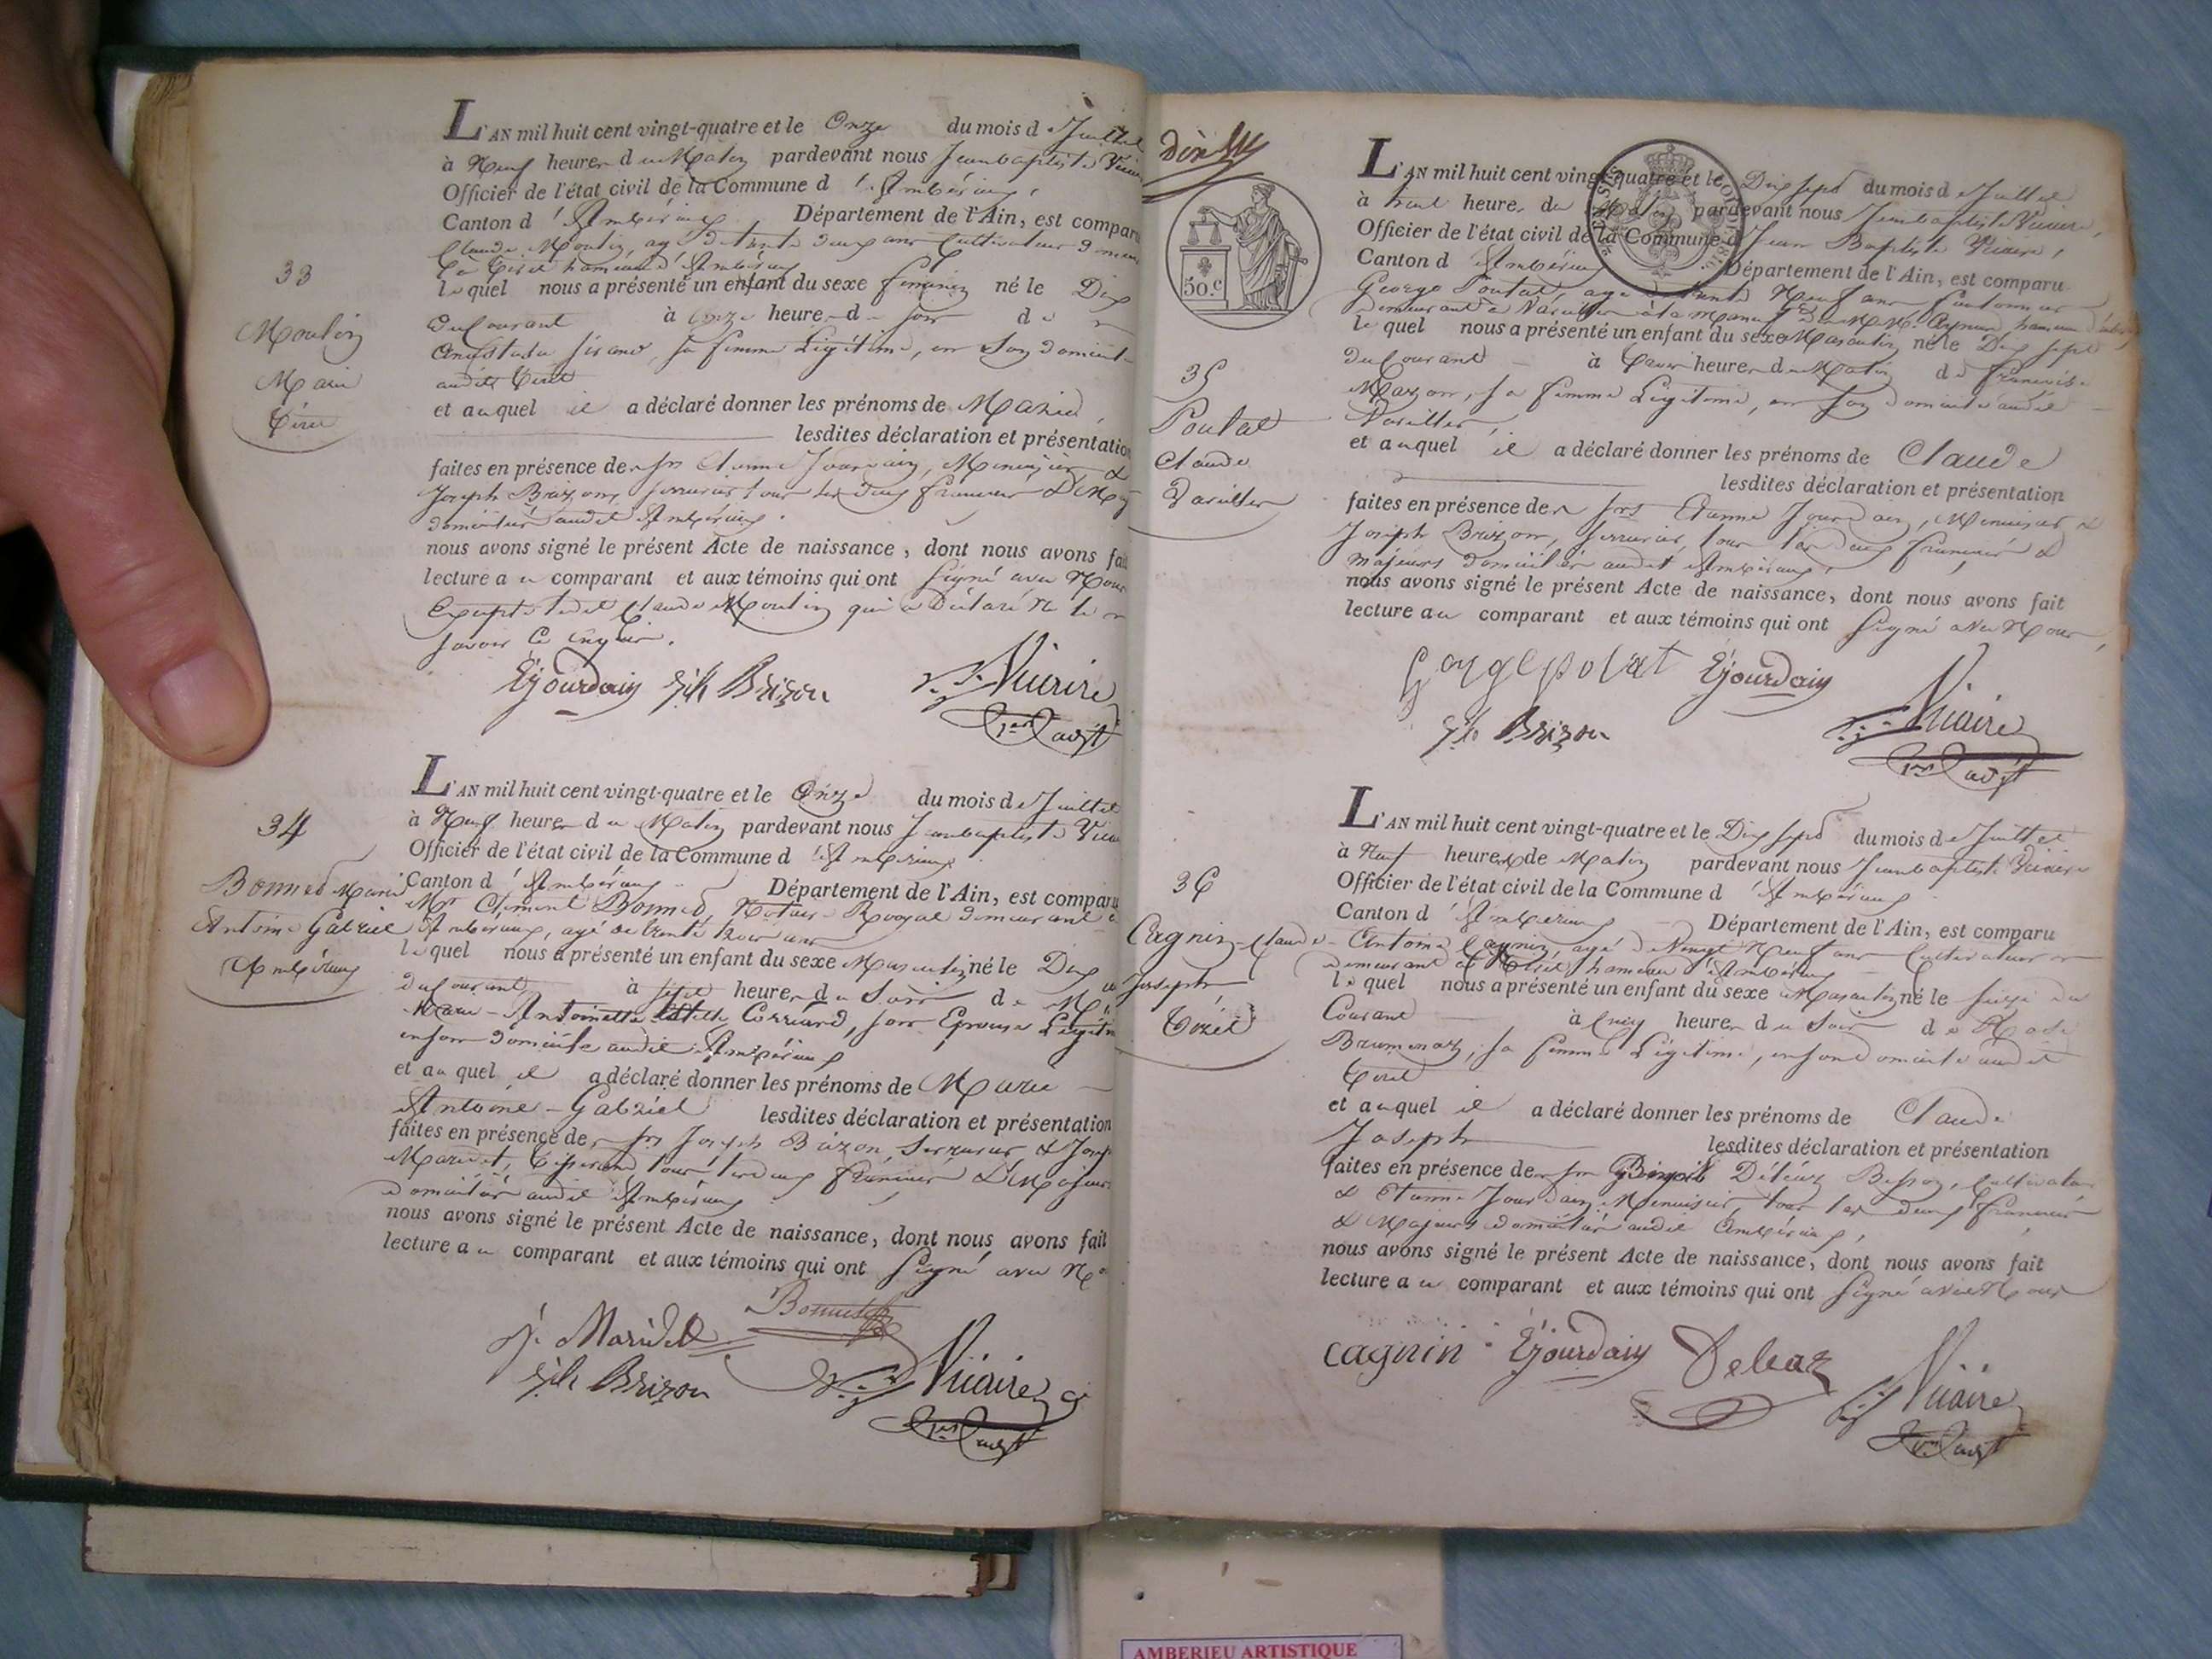 33
Moulin
Marie
Tiret
L'AN mil huit cent vingt-quatre et le Onze du mois de Juillet
à Neuf heures du Matin pardevant nous Jean baptiste
Officier de l'état civil de la Commune d'Ambérieux,
Canton d'Ambérieux Département de l'Ain, est comparu
Claude Moulin, agé de trente deux ans Cultivateur
Tiret hameau d'Ambérieux
lequel nous a présenté un enfant du sexe feminin né le Dix
du Courant à Onze heures du soir de
sa femme Légitime, en son domicile
audit Tiret
et auquel il a déclaré donner les prénoms de Marie,
lesdites déclaration et présentation
faites en présence des srs Etienne Jourdain, Menuisier &
Joseph Brizon, serrurier tous les deux français &
domiciliés audit Ambérieux.
nous avons signé le présent Acte de naissance, dont nous avons fait
lecture au comparant et aux témoins qui ont signé avec Nous
Excepté ledit Claude Moulin qui a déclaré ne le
savoir Ce requis.
Ejourdain Jph Brizon Vicaire
1er adjt
34
Bonnet Marie
Antoine Gabriel
Ambérieux
L'AN mil huit cent vingt-quatre et le Onze du mois de Juillet
à Neuf heures du Matin pardevant nous Jean baptiste
Officier de l'état civil de la Commune d'Ambérieux
Canton d'Ambérieux Département de l'Ain, est comparu
Mr Clement Bonnet Notaire Royal demeurant à
Ambérieux, agé de trente trois ans
lequel nous a présenté un enfant du sexe Masculin né le Dix
du Courant à sept heures du Soir de
Marie-Antoinette son Epouse
en son domicile audit Ambérieux
et auquel il a déclaré donner les prénoms de Marie
Antoine-Gabriel lesdites déclaration et présentation
faites en présence des srs Joseph Brizon, Serrurier &
tous les deux français & Majeurs
domiciliés audit Ambérieux
nous avons signé le présent Acte de naissance, dont nous avons fait
lecture au comparant et aux témoins qui ont signé avec
Bonnet
Jph Brizon Vicaire
1er adjt
50.c
35
Poulat
Claude
Vareilles
L'AN mil huit cent vingt-quatre et le Dix sept du mois de Juillet
à huit heures du Matin pardevant nous Jean baptiste Vicaire,
Officier de l'état civil de la Commune d Jean Baptiste Vicaire,
Canton d'Ambérieux Département de l'Ain, est comparu
George Poulat, agé de trente Neuf ans
demeurant à Vareilles
lequel nous a présenté un enfant du sexe Masculin né le Dix sept
du Courant à heures du Matin de françoise
sa femme Légitime, en son domicile audit
Vareilles
et auquel il a déclaré donner les prénoms de Claude
lesdites déclaration et présentation
faites en présence des srs Etienne Jourdain, Menuisier &
Joseph Brizon, serrurier, tous les deux français &
majeurs domiciliés audit Ambérieux,
nous avons signé le présent Acte de naissance, dont nous avons fait
lecture au comparant et aux témoins qui ont signé avec Nous,
Ejourdain
Jph Brizon Vicaire
1er adjt
36
Cagnin Claude
Joseph
Tiret
L'AN mil huit cent vingt-quatre et le Dix sept du mois de Juillet
à Neuf heures de Matin pardevant nous Jean baptiste Vicaire
Officier de l'état civil de la Commune d'Ambérieux
Canton d'Ambérieux Département de l'Ain, est comparu
Antoine Cagnin, agé de Vingt Neuf ans Cultivateur
demeurant à Tiret hameau d'Ambérieux
lequel nous a présenté un enfant du sexe Masculin né le seize du
Courant à Cinq heures du Soir de
sa femme Légitime, en son domicile audit
Tiret
et auquel il a déclaré donner les prénoms de Claude
Joseph lesdites déclaration et présentation
faites en présence des srs Cultivateur
& Etienne Jourdain, Menuisier, tous les deux français
& Majeurs domiciliés audit Ambérieux,
nous avons signé le présent Acte de naissance, dont nous avons fait
lecture au comparant et aux témoins qui ont signé avec Nous
cagnin Ejourdain Vicaire
AMBERIEU ARTISTIQUE